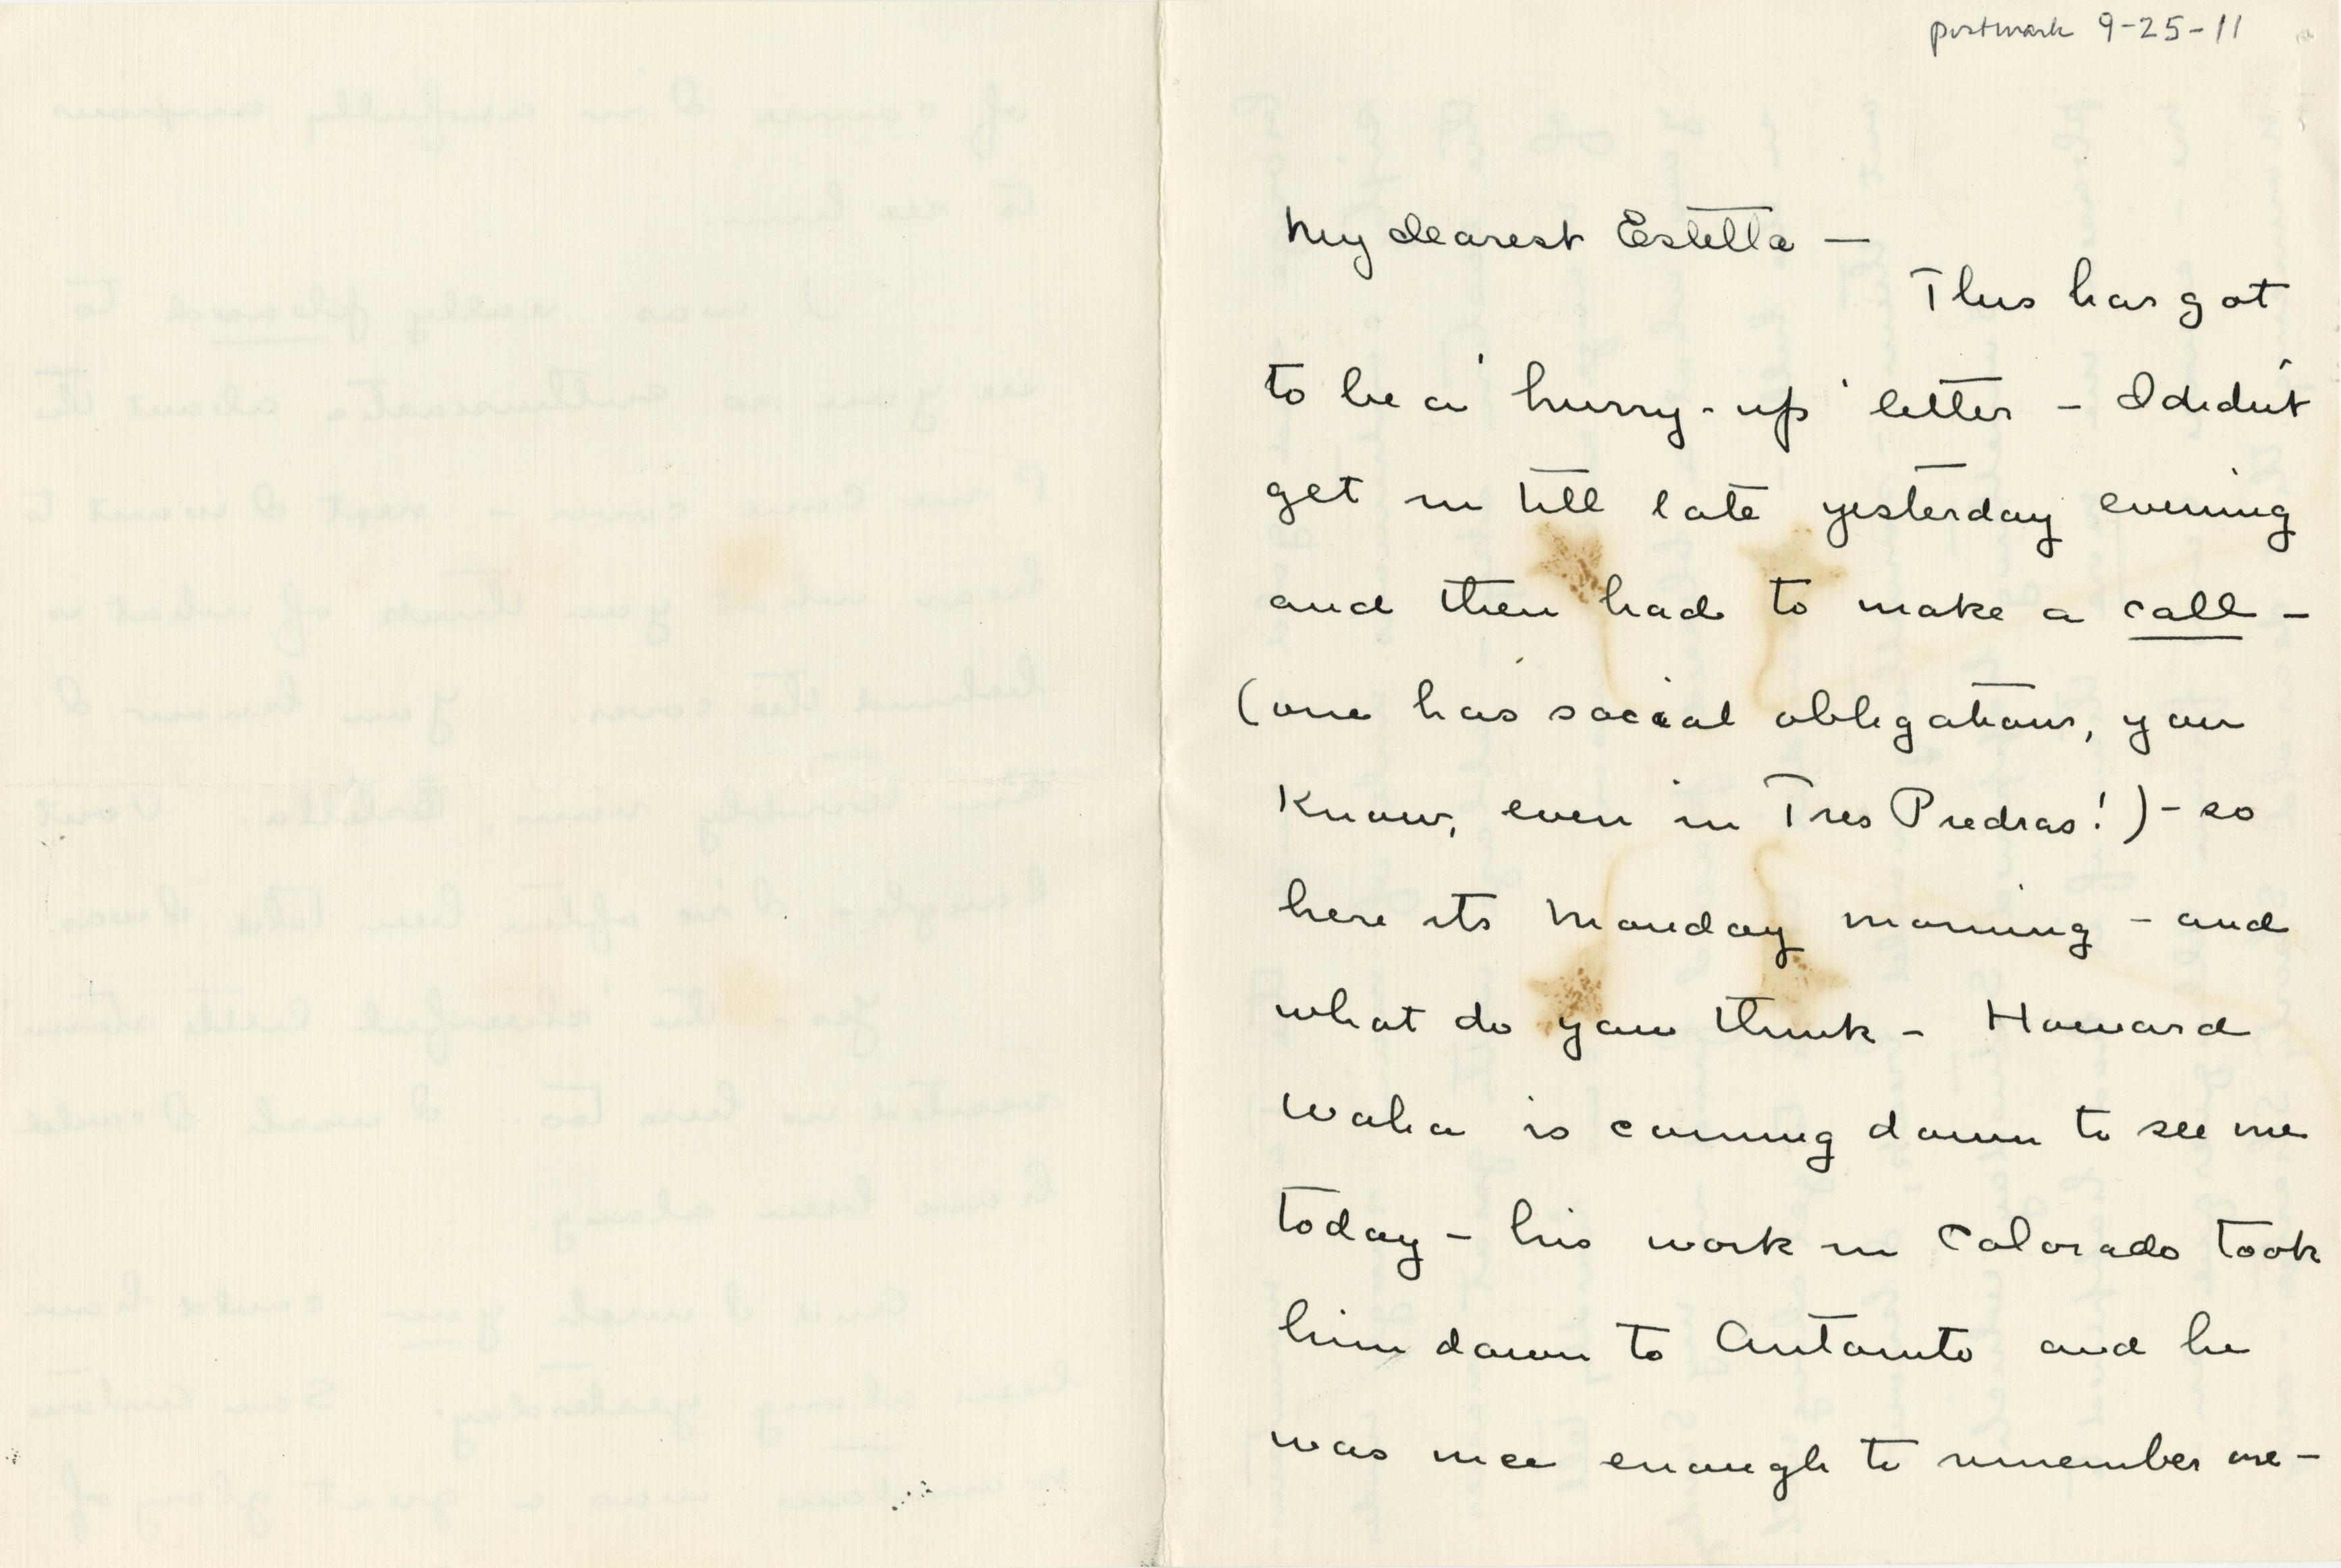 postmark 9-25-11
My dearest Estella —
This has got
to be a 'hurry-up' letter – I didn't
get in till late yesterday evening
and then had to make a call –
(one has social obligations, you
know, even in Tres Piedras!) – so
here its Monday morning – and
what do you think – Howard
Waha is coming down to see me
today – his work in Colorado took
him down to Antonito and he
was nice enough to remember me –